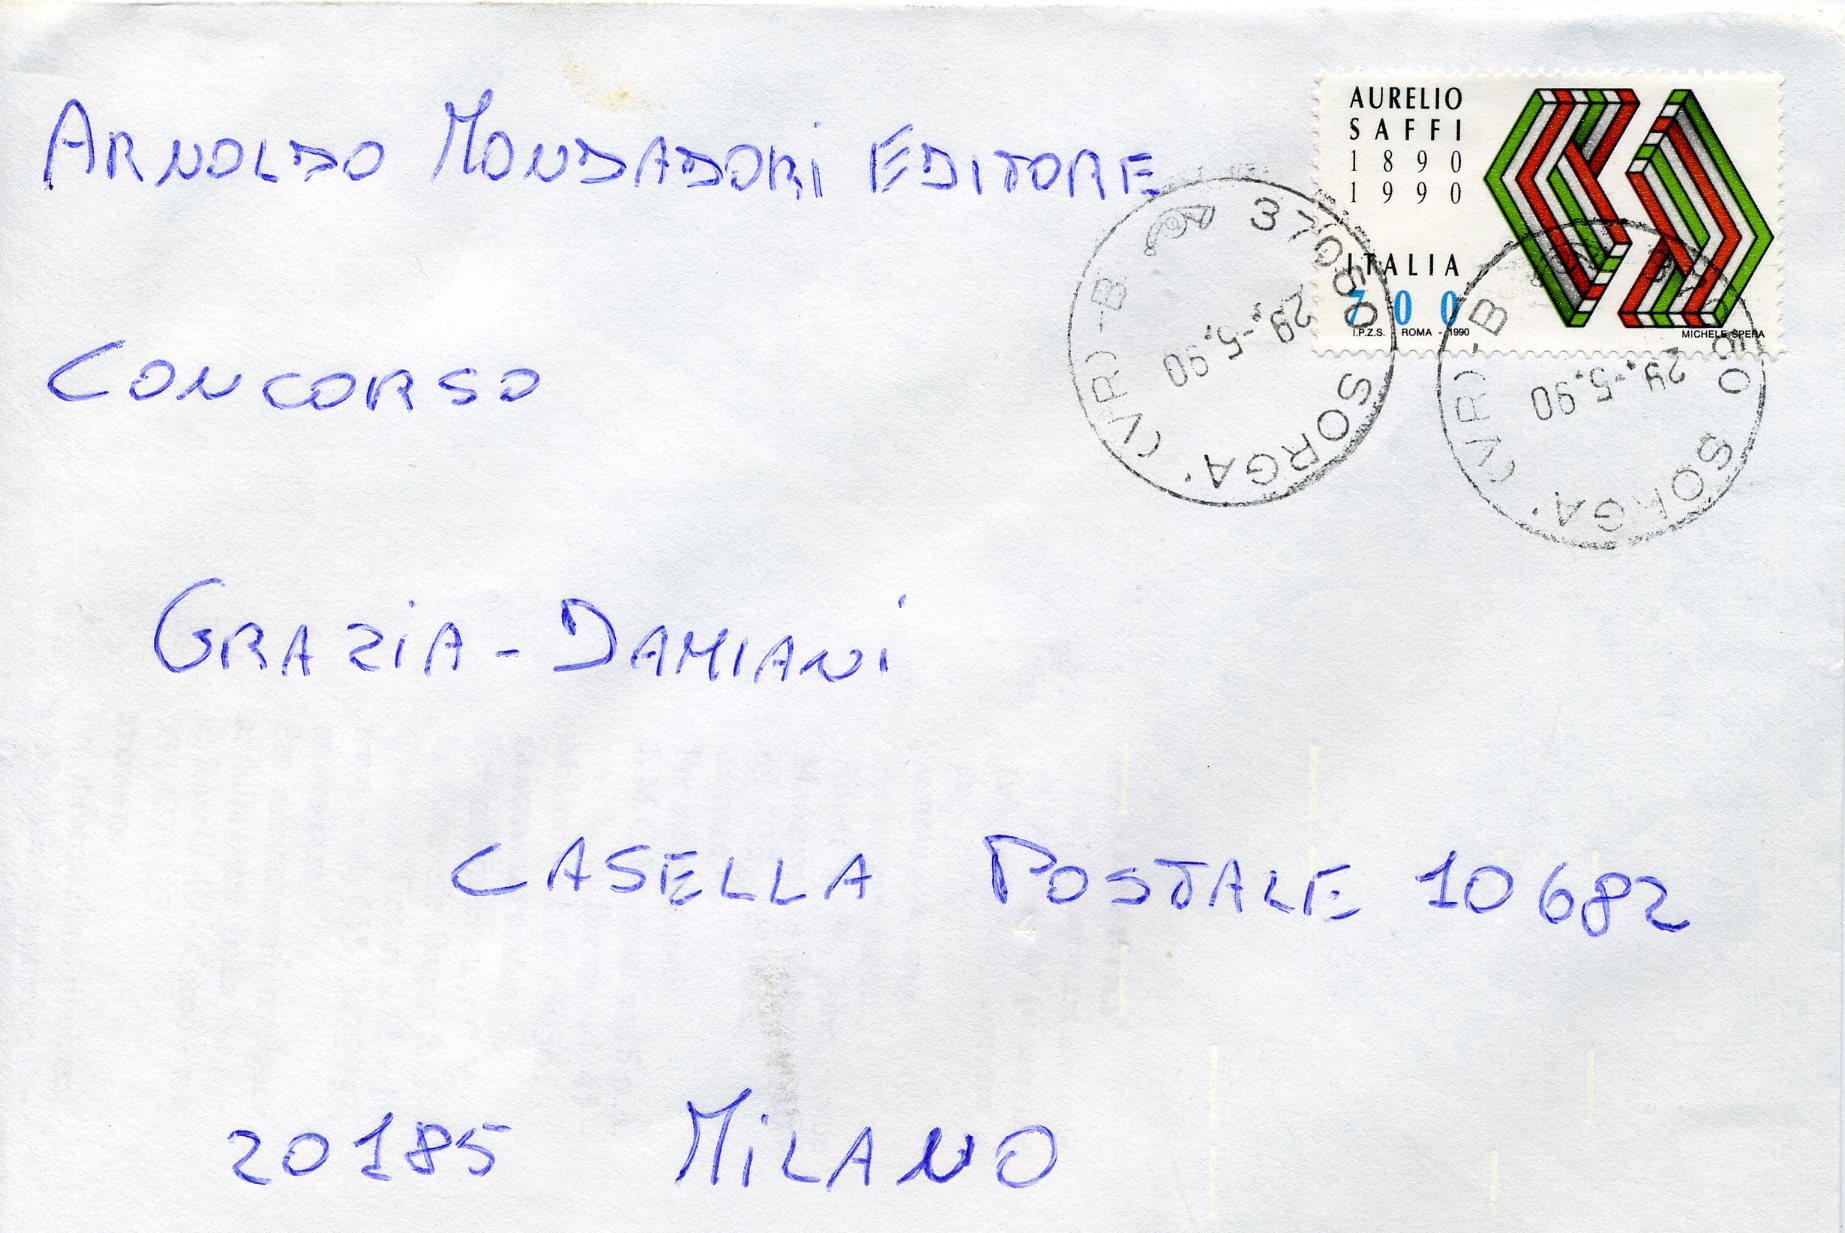 ARNOLDO MONDADORI EDITORE
CONCORSO
GRAZIA - DAMIANI
CASELLA POSTALE 10682
20185 MILANO
AURELIO
SAFFI
1890
1990
ITALIA
700
I.P.Z.S. ROMA - 1990
MICHELE SPERA
37060 SORGA' (VR) - B
29.-5.90
37060 SORGA' (VR) - B
29.-5.90